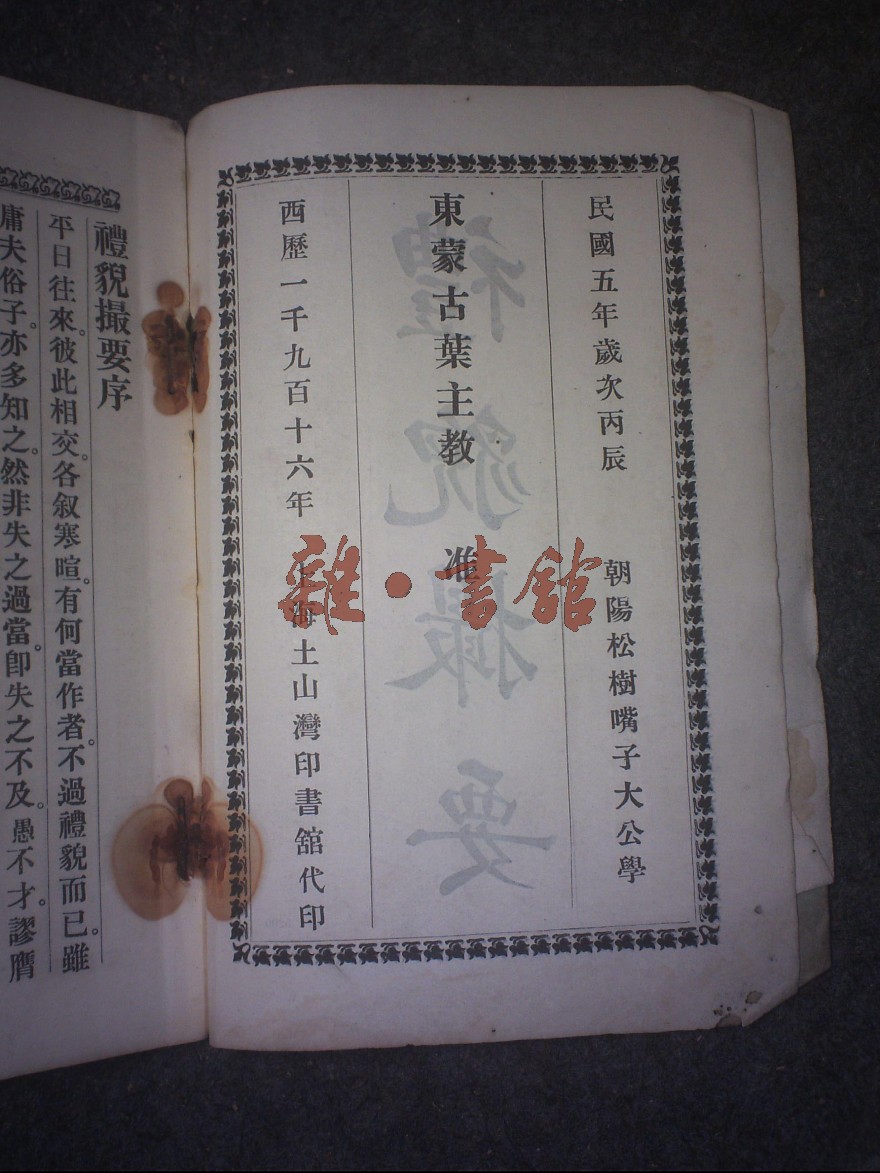 民國五年歲次丙辰 朝陽松樹嘴子大公學
東蒙古葉主教 准
西歷一千九百十六年 上海土山灣印書館代印
禮貌撮要
雜·書館
禮貌撮要序
平日往來。彼此相交。各叙寒暄。有何當作者。不過禮貌而已。雖
庸夫俗子。亦多知之。然非失之過當。卽失之不及。愚不才。謬膺